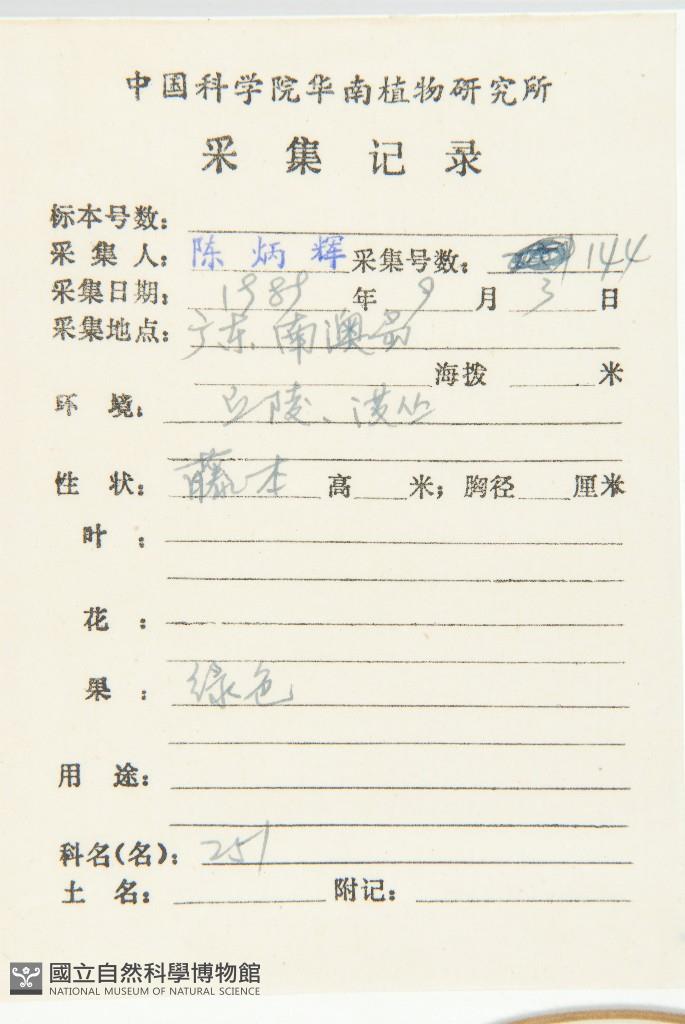 中国科学院华南植物研究所
采集记录
标本号数:
采集人: 陈炳辉 采集号数: 144
采集日期: 1989 年 9 月 3 日
采集地点: 广东南澳岛
海拨 米
环境: 丘陵、灌丛
性状: 藤本 高 米; 胸径 厘米
叶:
花:
果: 绿色
用途:
科名(名): 251
土名: 附记:
國立自然科學博物館
NATIONAL MUSEUM OF NATURAL SCIENCE